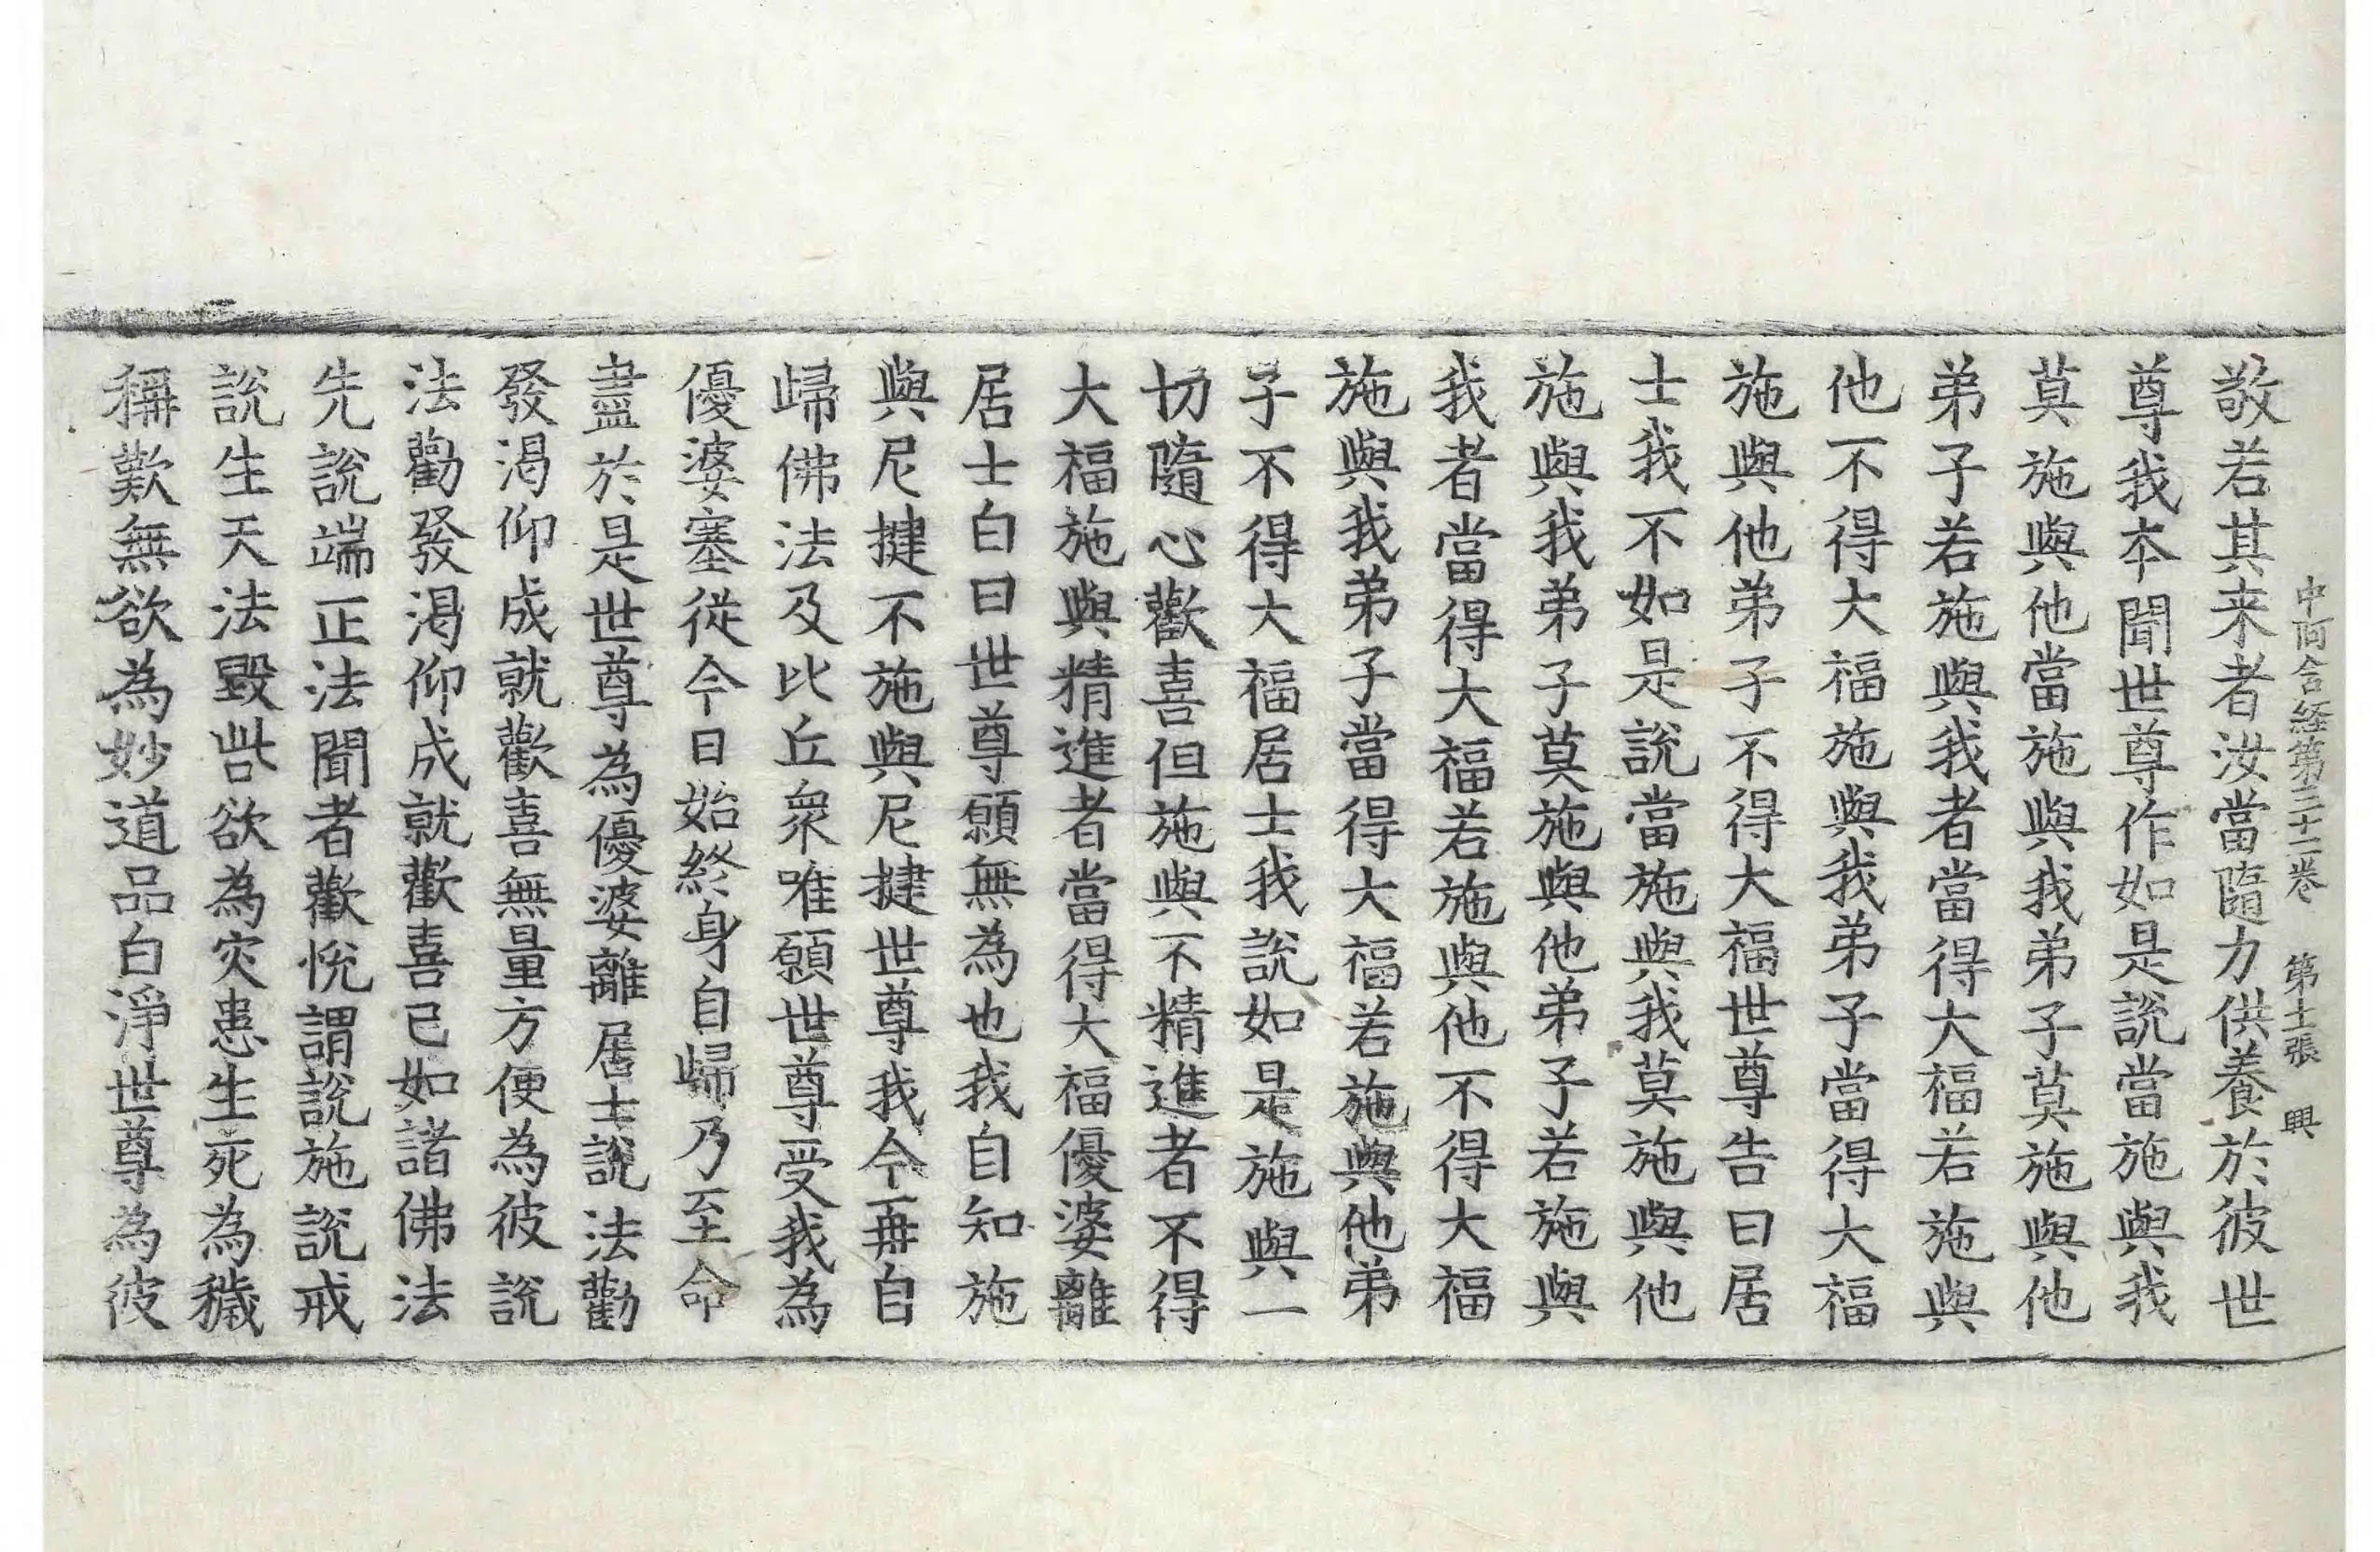 中阿含経第三十二巻 第十二張 興
敬若其来者汝當隨力供養於彼世
尊我本聞世尊作如是說當施與我
莫施與他當施與我弟子莫施與他
弟子若施與我者當得大福若施與
他不得大福施與我弟子當得大福
施與他弟子不得大福世尊告曰居
士我不如是說當施與我莫施與他
施與我弟子莫施與他弟子若施與
我者當得大福若施與他不得大福
施與我弟子當得大福若施與他弟
子不得大福居士我說如是施與一
切隨心歡喜但施與不精進者不得
大福施與精進者當得大福優婆離
居士白曰世尊願無為也我自知施
與尼揵不施與尼揵世尊我今再自
歸佛法及比丘衆唯願世尊受我為
優婆塞從今日始終身自歸乃至命
盡於是世尊為優婆離居士說法勸
發渴仰成就歡喜無量方便為彼說
法勸發渴仰成就歡喜已如諸佛法
先說端正法聞者歡悅謂說施說戒
說生天法毀呰欲為灾患生死為穢
稱歎無欲為妙道品白淨世尊為彼